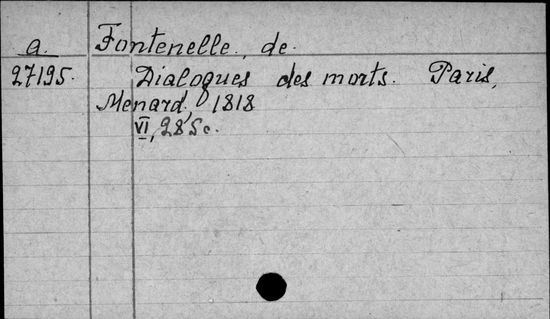 a. Fontenelle, de.
27195. Dialogues des morts. Paris,
Menard. 1818
VI, 285 c.